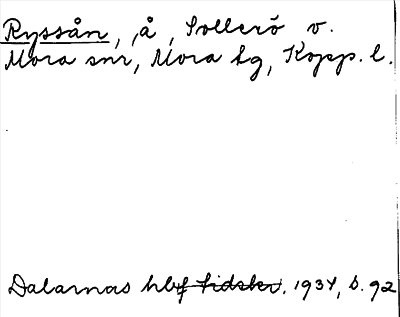 Ryssån, å, Sollerö v.
Mora snr, Mora tg, Kopp. l.
Dalarnas hbf tidskr. 1934, s. 92